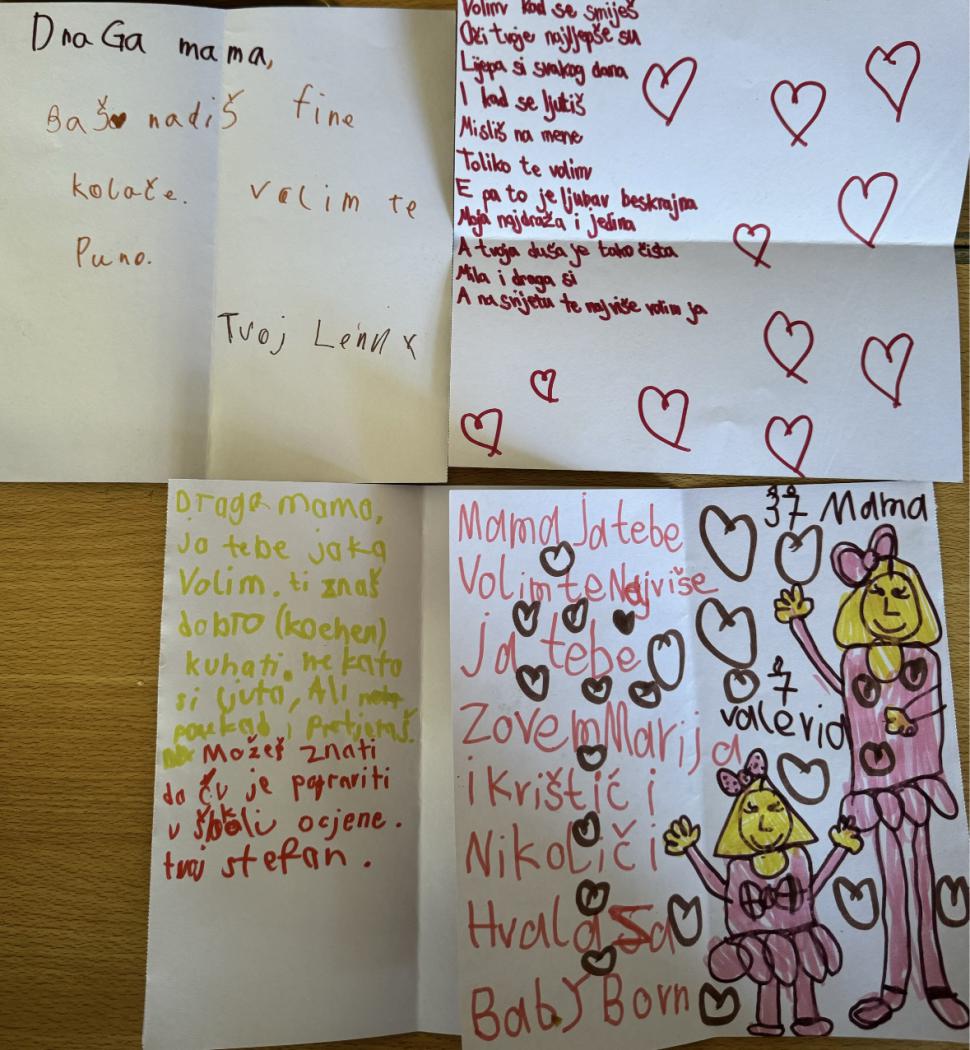 DnaGa mama,
Baš nadiš fine
kolače. valim te
Puno.
Tvoj Lenn
Volim kad se smiješ
Oči tvoje najljepše su
Lijepa si svakog dana
I kad se ljutiš
Misliš na mene
Toliko te volim
E pa to je ljubav beskrajna
Moja najdraža i jedina
A tvoja duša je tako čista
Mila i draga si
A na svijetu te najviše volim ja
Draga mama,
ja tebe jako
Volim. ti znaš
dobro (kochen)
kuhati. ne kato
si ljuta, Ali
ponkad i Pretjeraš.
Možeš znati
da ću je popraviti
u školu ocjene.
tvoj stefan.
Mama ja tebe
Volim te Najviše
ja tebe
Zovem Marija
i Krištič i
Nikolič i
Hvala Sa
Baby Born
37 Mama
7
valeria